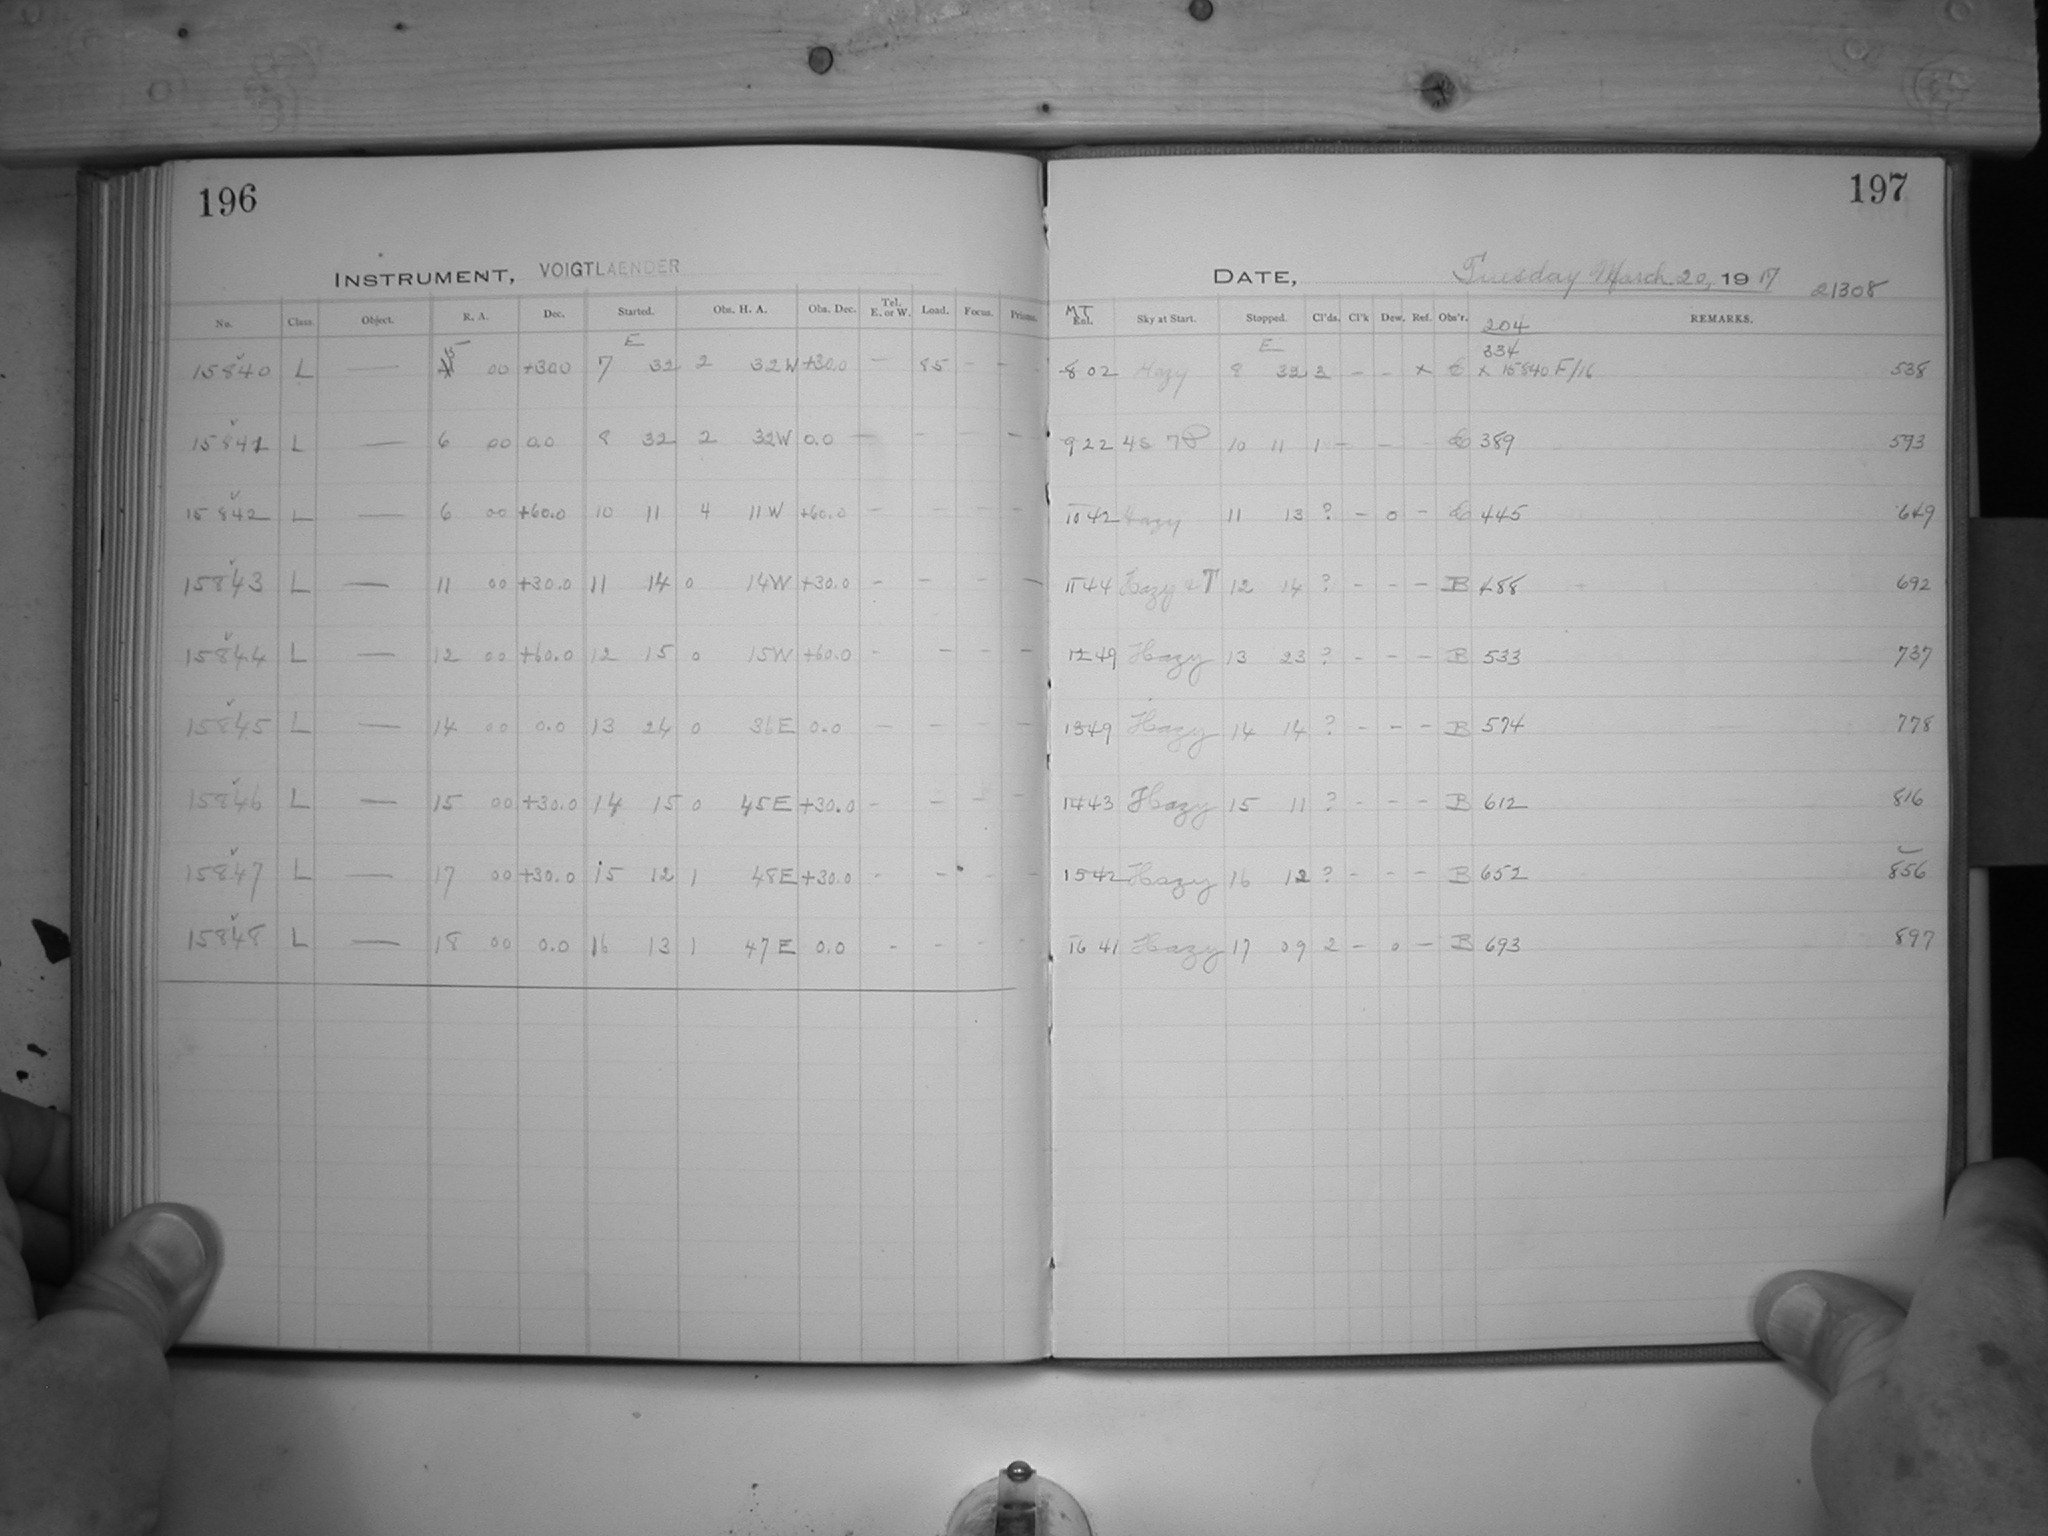 196
INSTRUMENT, VOIGTLAENDER
No. Class. Object. R. A. Dec. Started. Obs. H. A. Obs. Dec. Tel. E. or W. Load. Focus. Prisms.
E
15840 L — 5 00 +30.0 7 32 2 32W +30.0 — 85 - -
15841 L — 6 00 0.0 8 32 2 32W 0.0 — - - -
15842 L — 6 00 +60.0 10 11 4 11W +60.0 - - - -
15843 L — 11 00 +30.0 11 14 0 14W +30.0 - - - -
15844 L — 12 00 +60.0 12 15 0 15W +60.0 - - - -
15845 L — 14 00 0.0 13 24 0 36E 0.0 - - - -
15846 L — 15 00 +30.0 14 15 0 45E +30.0 - - - -
15847 L — 17 00 +30.0 15 12 1 48E +30.0 - - - -
15848 L — 18 00 0.0 16 13 1 47E 0.0 - - - -
197
DATE, Tuesday March 20, 1917 21308
MT Sky at Start. Stopped. Cl'ds. Cl'k Dew. Ref. Obs'r. 204 REMARKS.
E 334
8 02 Hazy 8 32 3 - - x x 15840 F/16 538
9 22 10 11 1 - - 389 593
10 42 Hazy 11 13 ? - 0 - 445 649
11 44 Hazy 12 14 ? - - - B 488 692
12 49 Hazy 13 23 ? - - - B 533 737
13 49 Hazy 14 14 ? - - - B 574 778
14 43 Hazy 15 11 ? - - - B 612 816
15 42 Hazy 16 12 ? - - - B 652 856
16 41 Hazy 17 09 2 - 0 - B 693 897